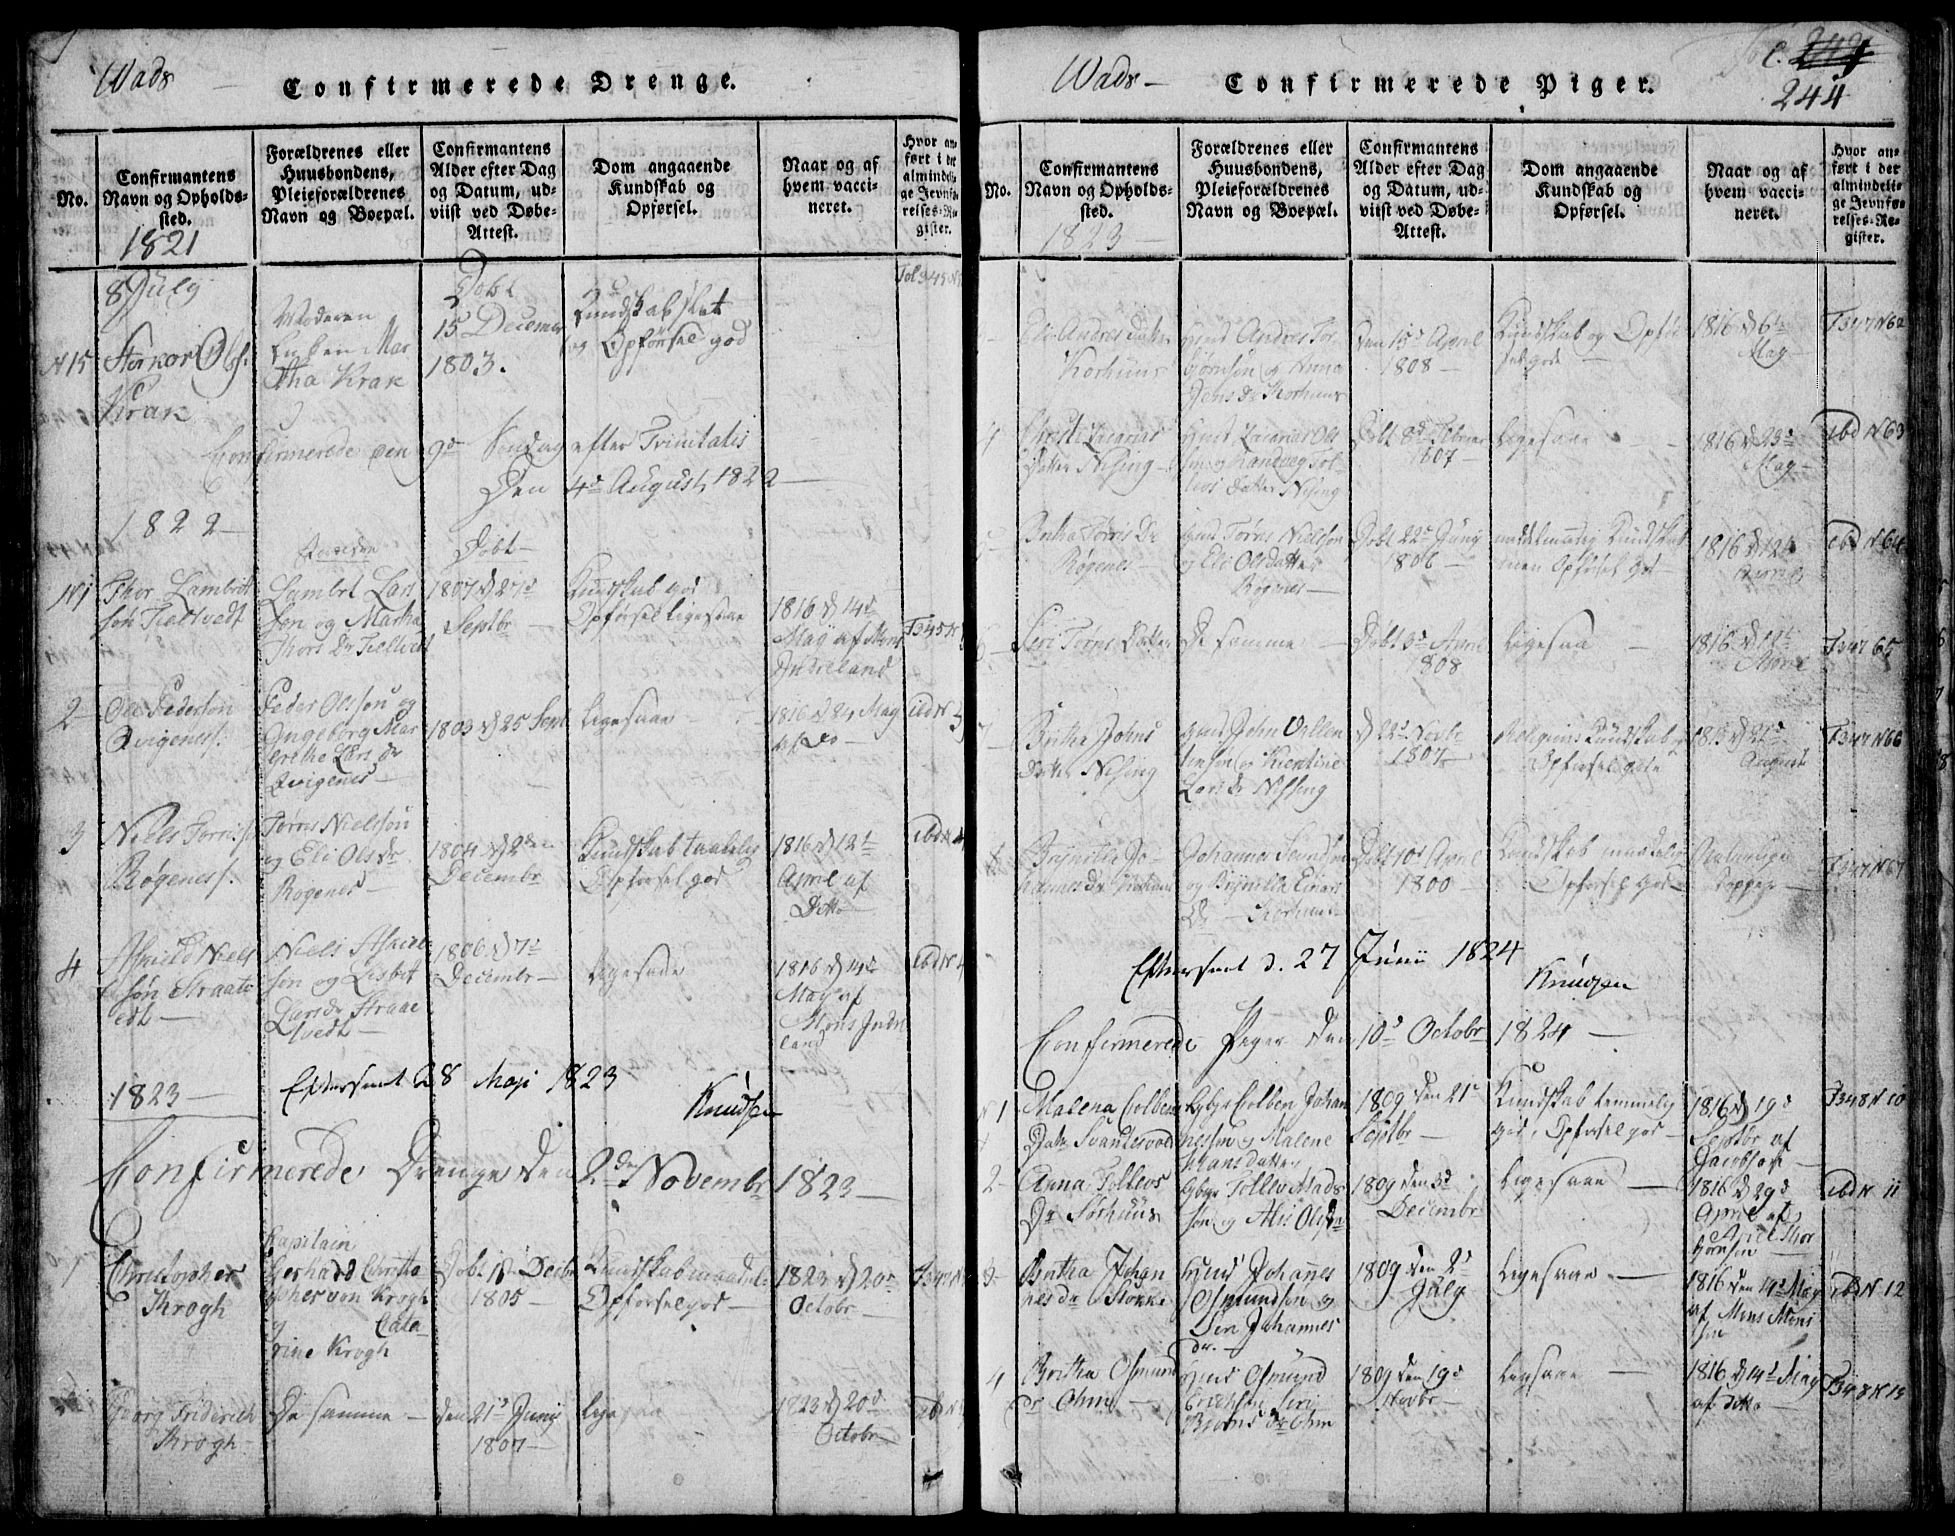 Wads
Confirmerede Drenge.
No.
Confirmantens
Navn og Opholds-
sted.
Forældrenes eller
Huusbondens,
Pleieforældrenes
Navn og Boepæl.
Confirmantens
Alder efter Dag
og Datum, ud-
viist ved Døbe-
Attest.
Dom angaaende
Kundskab og
Opførsel.
Naar og af
hvem vacci-
neret.
Hvor an-
ført i det
almindeli-
ge Jevnfø-
relses-Re-
gister.
1821
8 July
N 15
Krak
Moderen
Enken Mar
tha Krak
Døbt
15 Decemer
1803.
Kundskab slet
og Opførsel god
Confirmerede den 9de Søndag efter Trinitatis
Den 4de August 1822
1822
N 1
Thor Lambret
søn Tieltvedt
Lambrt Lars
søn og Martha
Thors Dr
Døbt
1807 d 27de
Septbr
Kundskab god
Opførsel ligesaae
1816 d 14de
May af Mons
Indreland
F 345 N
2
Ole Pedersøn
Qvigenes
Peder Olssøn og
Ingeborg Mar
gretha Lars dr
Qvigenes
1803 d 25 Sept
Ligesaae
1816 d 24 May
af Do
ibd N
3
Niels Tørris s.
Røgenes.
Tørres Nielssøn
og Eli Ols dr
Røgenes
1804 d 2den
Decembr
Kundskab taalelig
Opførsel god
1816 d 12t
April af
Ditto
ibd N
4
Niels
søn Straatv
edt
Niels
søn og Lisbet
Lars dr Straae
tvedt
1806 d 7de
Decembr
Ligesaae
1816 d 14de
May af
Mons Indre
land
ibd N
1823
Efterseet 28 Maji 1823
Knudsen
Confirmerede Drenge den 2den Novembr 1823
1
Christopher
Krogh
Kapitain
Gerhard Christo
pher von Krogh
og Cata
rine Krogh
Døbt 18 Decbr
1805
Kundskab maadel.
Opførsel god
1823 d 20de
Octobr
F 347 N
Georg Friderich
Krogh
De samme
den 21de Junij
1807
Ligesaa
1823 d 20de
Octobr
ibd N
Wads
Confirmerede Piger.
244
No.
Confirmantens
Navn og Opholds-
sted.
Forældrenes eller
Huusbondens,
Pleieforældrenes
Navn og Boepæl.
Confirmantens
Alder efter Dag
og Datum, ud-
viist ved Døbe-
Attest.
Dom angaaende
Kundskab og
Opførsel.
Naar og af
hvem vacci-
neret.
Hvor an-
ført i der
almindeli-
ge Jevnfø-
relses-Re-
gister.
1823
Eli Andres Datter
Korhuus
Andres Tor
biørnsøn og Anna
Jens Dr Korhuus
den 15de April
1808
Kundskab og Opfør
sel god
1816 d 6te
May
F 347 N 62
4
Zacarias
Datter Nising
Zacarias Ols
søn og Randveg Tol
levs Datter Nising
Døbt 8de Februar
1807
Ligesaae
1816 d 23de
May
ibd N 63
5
Britha Tørris Dr
Røgenes
Tørres Nielssøn
og Eli Olsdatter
Røgenes
Døbt 22de Junij
1806
maadelig Kundskab
men Opførsel god
1816 d 12te
April
ibd N 64
6
Siri Tørris Datter
De samme
Døbt 3de April
1808
Ligesaa
1816 d 12te
April
F 347 65
7
Britha Johns
Datter Nising
John Villem
Lars dr Nissing
d 22de Novbr
1807
Religions Kundskab og
Opførsel gode
1815 d 21de
Augusti
F 347 N 66
8
Brynilda Jo-
hannes dr
Johannes
og Brynilda Einars
Dr Korhuus
Døbt 10de April
1800
Kundskab maadelig
Opførsel god
Naturlige
Kopper
F 347 N 67
Efterseet d. 27 Junii 1824
Knudsen
Confirmerede Piger den 10de Octobr 1824
N 1
Malena Colbens
Datr Svandesvold
Colben Johan
nessøn og Malene
Hansdatter
1809 den 21de
Septbr
Kundskab temmelig
god, Opførsel god
1816 d 19de
Septbr af
Jacobsøn
F 348 N 10
2
Anna Tollevs
Dr Sørhuus
Tollev Mads
søn og Alis Olsdr
1809 den 3de
Decembr
Ligesaae
1816 d 29de
April af
Thor
biørnsen
ibd N 11
3
Britha Johan
nes dr Stokke
Johannes
Osmundsøn og
Siri Johannes
dr.
1809 den 2de
July
Ligesaae
1816 den 14de May
af Mons Mons
søn
ibd N 12
4
Britha Osmund
dr Ohm
Osmund
Erichsen Siri
Biørns dr Ohm
1809 den 19de
Novbr
Ligesaae
1816 d 14de May
af ditto
F 348 N 13